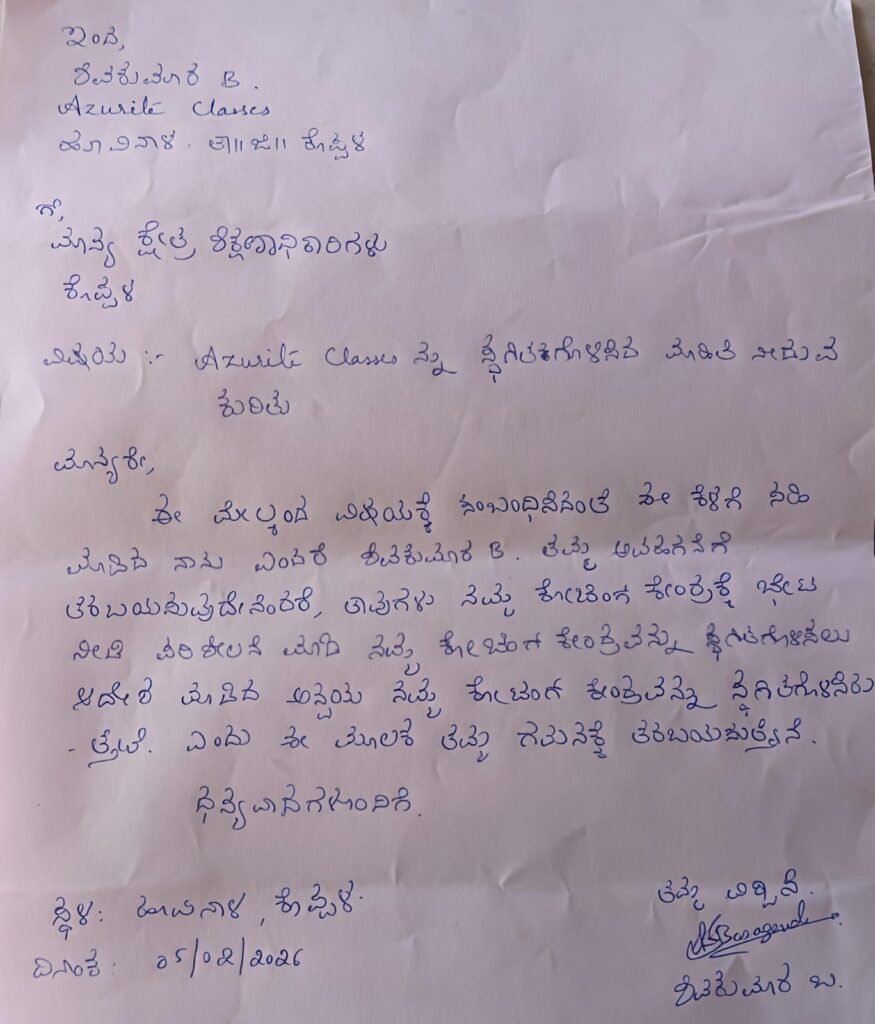 ಇಂದ,
ಶಿವಕುಮಾರ B.
Azurite Classes
ಹೂವಿನಾಳ. ತಾ॥ಜಿ॥ ಕೊಪ್ಪಳ
ಗೆ,
ಮಾನ್ಯ ಕ್ಷೇತ್ರ ಶಿಕ್ಷಣಾಧಿಕಾರಿಗಳು
ಕೊಪ್ಪಳ
ವಿಷಯ :- Azurite Classes ನ್ನು ಸ್ಥಗಿತಗೊಳಿಸಿದ ಮಾಹಿತಿ ನೀಡುವ
ಕುರಿತು
ಮಾನ್ಯರೇ,
ಈ ಮೇಲ್ಕಂಡ ವಿಷಯಕ್ಕೆ ಸಂಬಂಧಿಸಿದಂತೆ ಈ ಕೆಳಗೆ ಸಹಿ
ಮಾಡಿದ ನಾನು ಎಂದರೆ ಶಿವಕುಮಾರ B. ತಮ್ಮ ಅವಹಗನೆಗೆ
ತರಬಯಸುವುದೇನೆಂದರೆ, ತಾವುಗಳು ನಮ್ಮ ಕೋಚಿಂಗ ಕೇಂದ್ರಕ್ಕೆ ಭೇಟಿ
ನೀಡಿ ಪರಿಶೀಲನೆ ಮಾಡಿ ನಮ್ಮ ಕೋಚಿಂಗ್ ಕೇಂದ್ರವನ್ನು ಸ್ಥಗಿತಗೊಳಿಸಲು
ಆದೇಶ ಮಾಡಿದ ಅನ್ವಯ ನಮ್ಮ ಕೋಚಿಂಗ್ ಕೇಂದ್ರವನ್ನು ಸ್ಥಗಿತಗೊಳಿಸಿರು
- ತ್ತೇವೆ. ಎಂದು ಈ ಮೂಲಕ ತಮ್ಮ ಗಮನಕ್ಕೆ ತರಬಯಸುತ್ತೇನೆ.
ಧನ್ಯವಾದಗಳೊಂದಿಗೆ.
ಸ್ಥಳ: ಹೂವಿನಾಳ, ಕೊಪ್ಪಳ.
ದಿನಾಂಕ: 05/02/2026
ತಮ್ಮ ವಿಶ್ವಾಸಿ.
ಶಿವಕುಮಾರ ಬ.